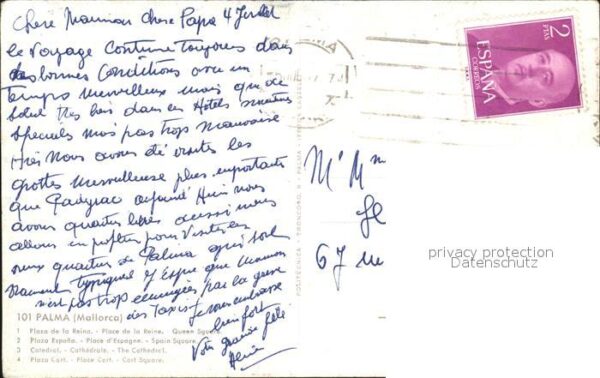 Chere Maman Chere Papa 4 Juillet
le Voyage Continue Toujours dans
des bonnes Conditions avec un
Temps merveilleux mais que de
Soleil Tres bais dans en Hotels
Speciale mais pas trop mauvaise
Hier Nous avons été visites les
grottes Merveilleuse plus importantes
que Padirac aujourd Hui nous
avons quartier libre aussi nous
allons en profiter pour Visiter les
vieux quartier de Palma qui sont
vraiment typiques J'Espre que Maman
n'est pas trop par la greve
des Taxis Je vous embrasse
bien fort
Votre grande fille
PALMA
2
PTAS
ESPAÑA
CORREOS
Mr M
67
privacy protection
Datenschutz
101 PALMA (Mallorca)
1 Plaza de la Reina. - Place de la Reine. Queen Square.
2 Plaza España. - Place d'Espagne. - Spain Square.
3 Catedral. - Cathédrale. - The Cathedral.
4 Plaza Cort. - Place Cort. - Cort Square.